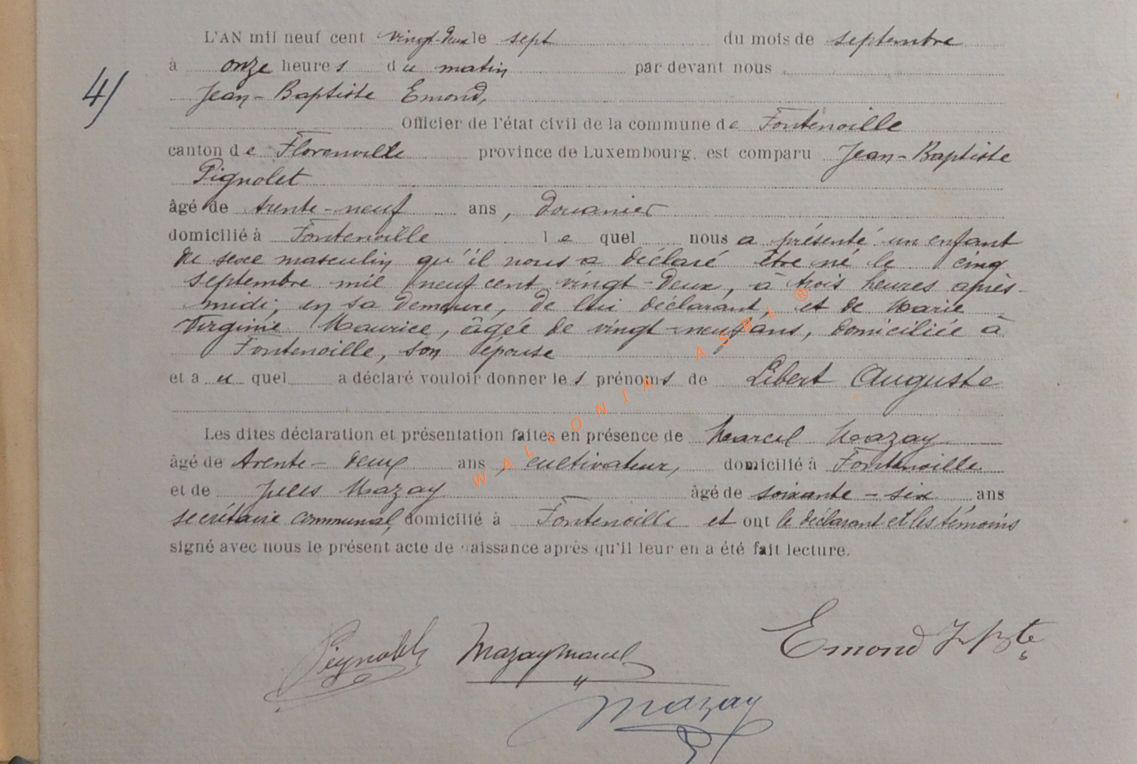 L'AN mil neuf cent vingt-deux le sept du mois de septembre
4/
à onze heures du matin par devant nous
Jean-Baptiste Emond,
Officier de l'état civil de la commune de Fontenoille
canton de Florenville province de Luxembourg, est comparu Jean-Baptiste
Pignolet
âgé de trente-neuf ans, douanier
domicilié à Fontenoille lequel nous a présenté un enfant
du sexe masculin qu'il nous a déclaré être né le cinq
septembre mil neuf cent vingt-deux, à trois heures après-
midi, en sa demeure, de lui déclarant, et de Marie
Virginie Maurice, âgée de vingt-neuf ans, domiciliée à
Fontenoille, son épouse
et au quel a déclaré vouloir donner les prénoms de Libert Auguste
Les dites déclaration et présentation faites en présence de Marcel Mazay
âgé de trente-deux ans, cultivateur, domicilié à Fontenoille
et de Jules Mazay âgé de soixante-six ans
secrétaire communal, domicilié à Fontenoille et ont le déclarant et les témoins
signé avec nous le présent acte de naissance après qu'il leur en a été fait lecture.
Pignolet Mazay Marcel Emond J Bte
Mazay
WALLONIA ASBL ®